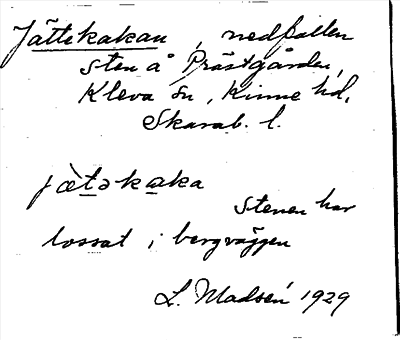 Jättekakan, nedfallen
sten å Prästgården,
Kleva sn, Kinne hd,
Skarab. l.
jæ̀təkaka
Stenen har
lossat i bergväggen
L. Madsén 1929